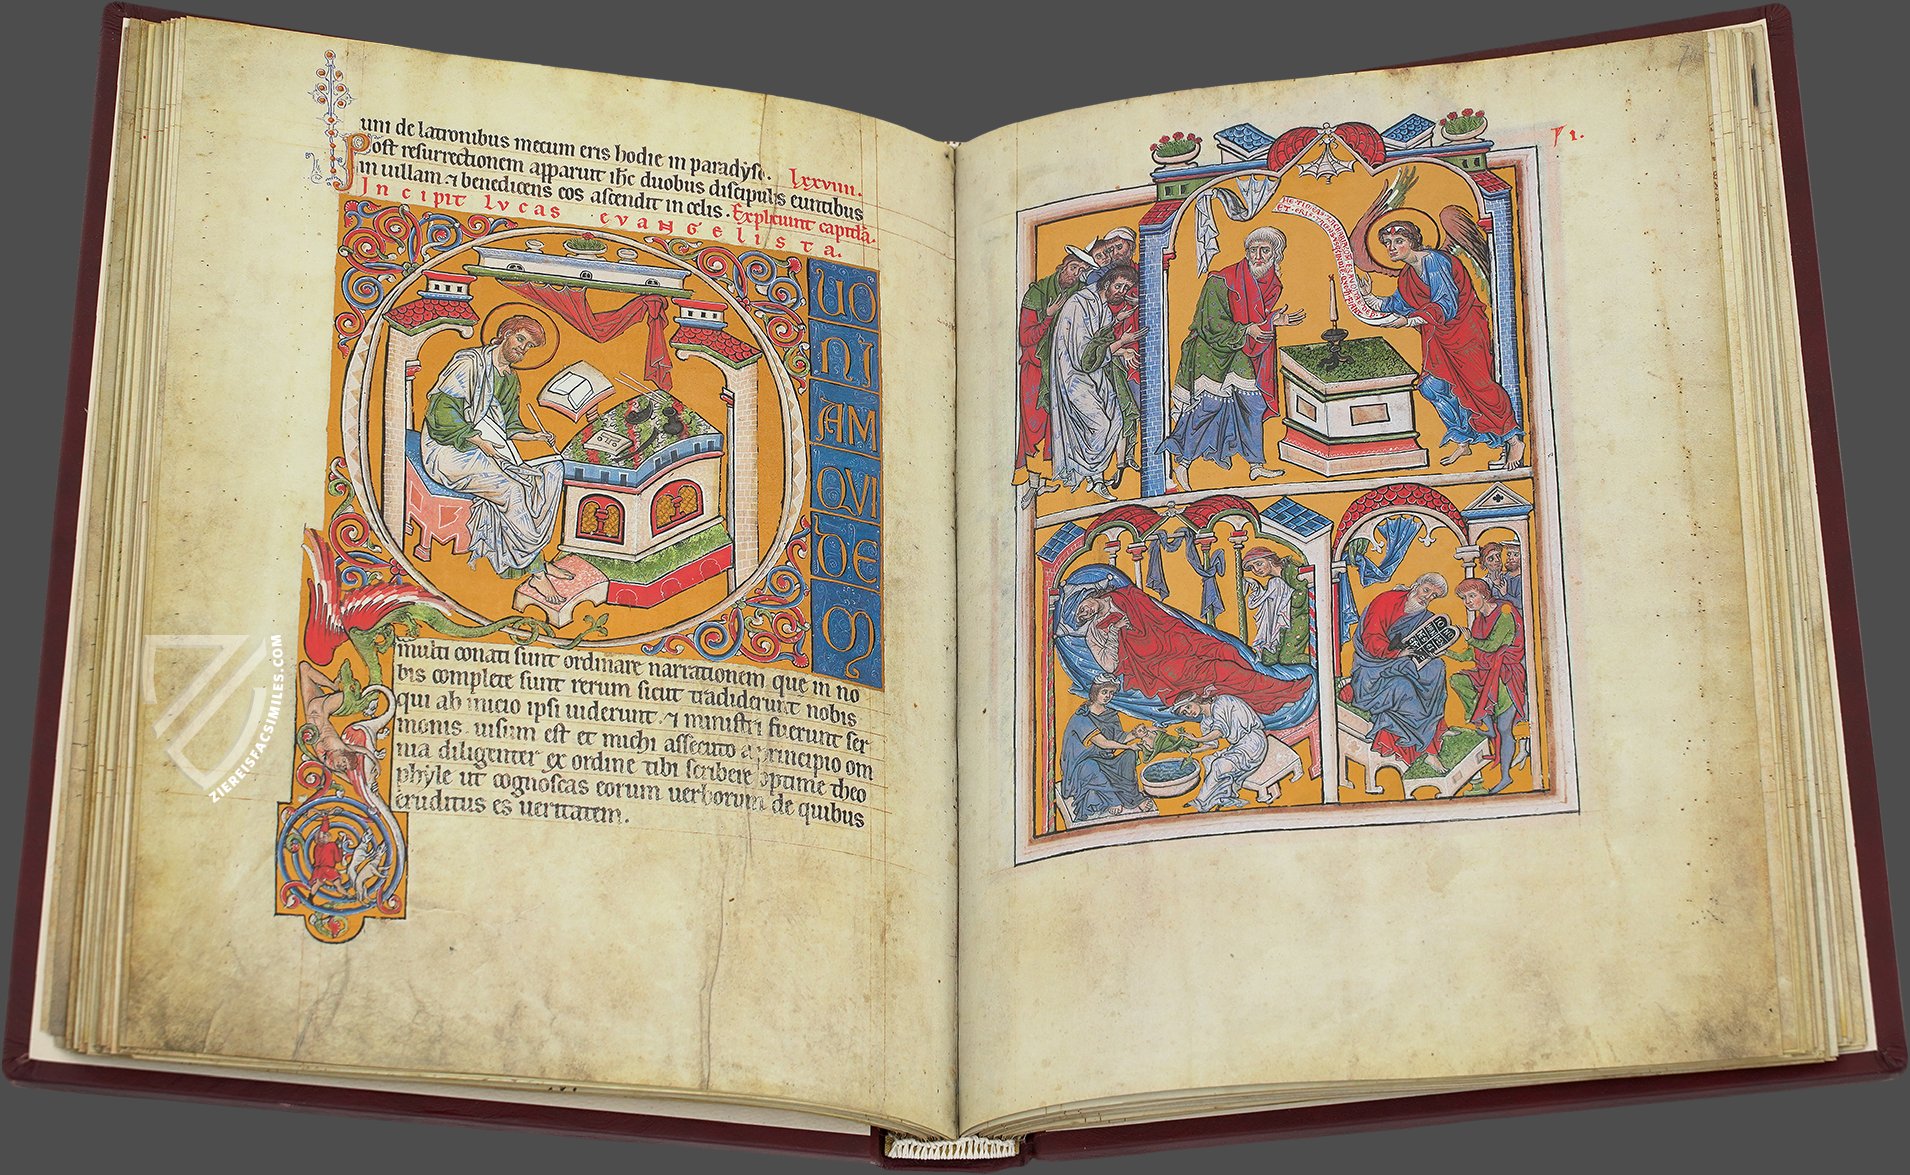 um de latronibus mecum eris hodie in paradyso.
Post resurrectionem apparuit ihc duobus discipulis euntibus Lxxviiii.
in uillam ⁊ benedicens eos ascendit in celis. Expliciunt capitla.
Incipit lvcas evangelista.
UO
NI
AM
QVI
DE
M
multi conati sunt ordinare narrationem que in no
bis complete sunt rerum sicut tradiderunt nobis
qui ab inicio ipsi uiderunt. ⁊ ministri fuerunt ser
monis. uisum est et michi assecuto a principio om
nia diligenter ex ordine tibi scribere optime theo
phyle ut cognoscas eorum uerborum de quibus
eruditus es ueritatem.
ZIEREISFACSIMILES.COM